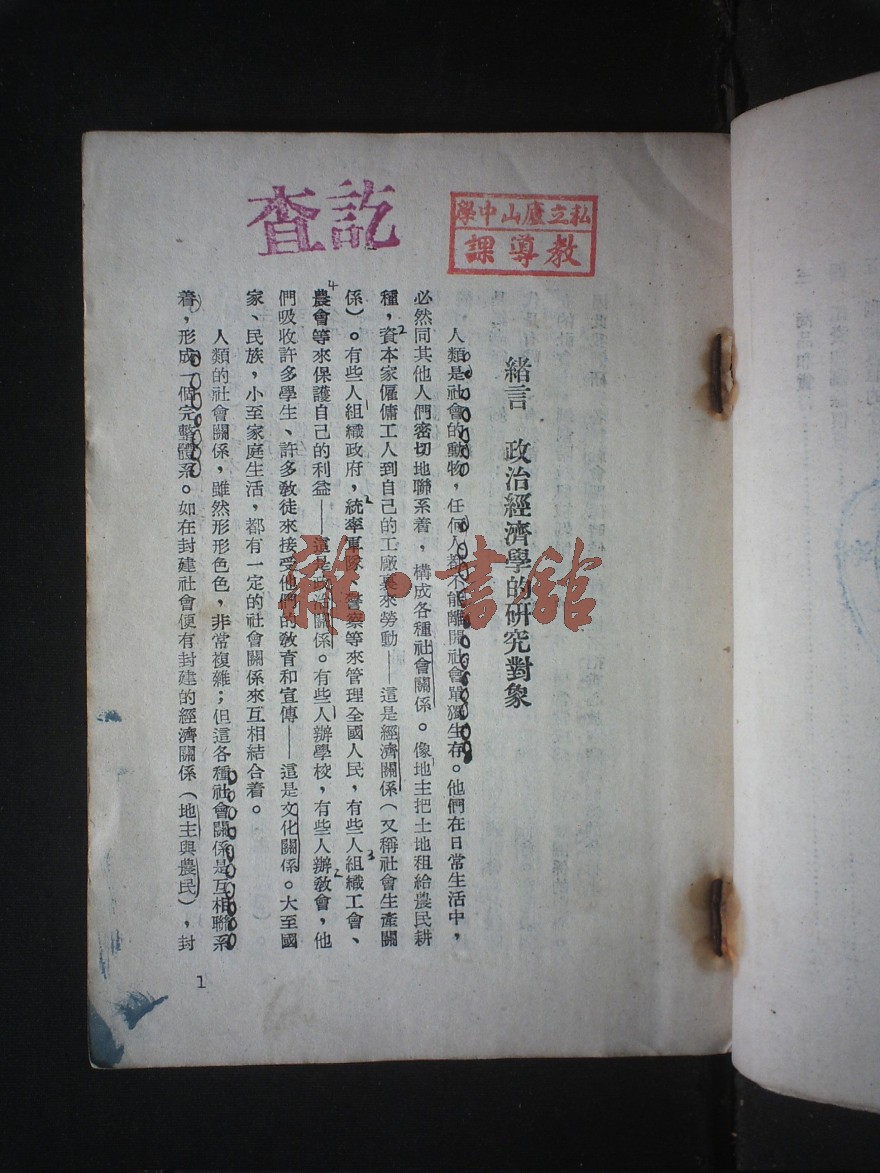 查訖
私立廬山中學
教導課
緒言　政治經濟學的研究對象
人類是社會的動物，任何人都不能離開社會單獨生存。他們在日常生活中，
必然同其他人們密切地聯系着，構成各種社會關係。像地主把土地租給農民耕
種，資本家僱傭工人到自己的工廠裏來勞動——這是經濟關係（又稱社會生產關
係）。有些人組織政府，統率軍隊、警察等來管理全國人民，有些人組織工會、
農會等來保護自己的利益——這是政治關係。有些人辦學校，有些人辦教會，他
們吸收許多學生、許多教徒來接受他們的教育和宣傳——這是文化關係。大至國
家、民族，小至家庭生活，都有一定的社會關係來互相結合着。
人類的社會關係，雖然形形色色，非常複雜；但這各種社會關係是互相聯系
着，形成一個完整體系。如在封建社會便有封建的經濟關係（地主與農民），封
1
雜·書館